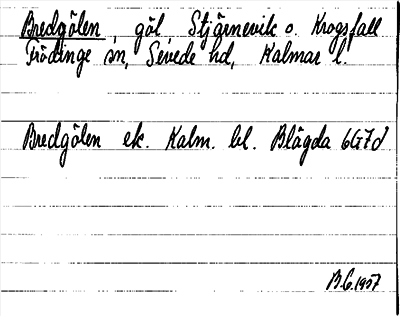 Bredgölen, göl, Stjärnevik o. Krogsfall
Frödinge sn, Sevede hd, Kalmar l.
Bredgölen ek. Kalm. bl. Blägda 6G7d
B.G.1957